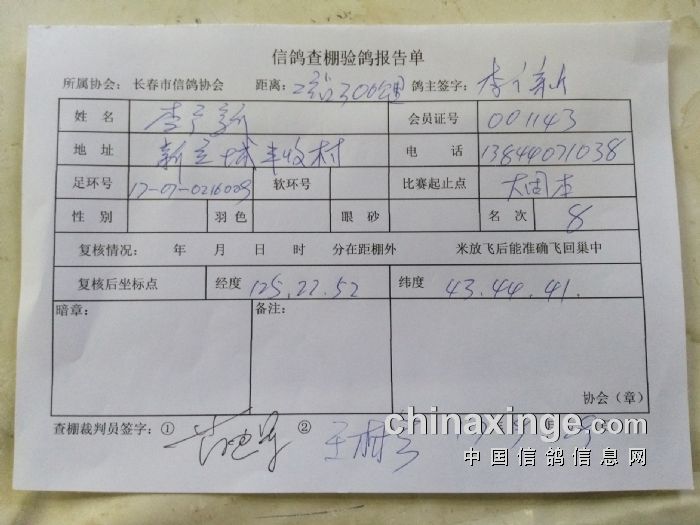 信鸽查棚验鸽报告单
所属协会：长春市信鸽协会 距离：300公里 鸽主签字：李
姓名 李 会员证号 001143
地址 新立城丰收村 电话 13844071038
足环号 17-07-0216009 软环号 比赛起止点 大固本
性别 羽色 眼砂 名次 8
复核情况： 年 月 日 时 分在距棚外 米放飞后能准确飞回巢中
复核后坐标点 经度 125.22.52 纬度 43.44.41.
暗章： 备注：
协会（章）
查棚裁判员签字：① ② 于树
chinaxinge.com
中国信鸽信息网